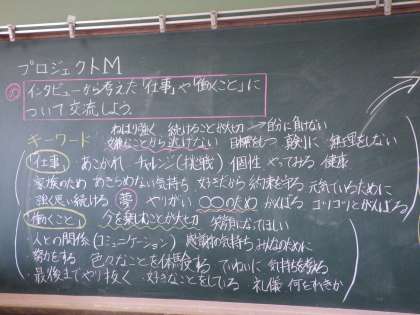 プロジェクトM
め インタビューから考えた「仕事」や「働くこと」に
ついて交流しよう。
キーワード ねばり強く 続けることが大切 → 自分に負けない
嫌なことから逃げない 目標をもつ 無理をしない
仕事 ・あこがれ チャレンジ(挑戦) 個性 やってみる 健康
・家族のため あきらめない気持ち 好きだから 約束を守る 元気でいるために
・強く思い続ける 夢 やりがい ○○のため がんばる コツコツとがんばる
働くこと ・今を楽しむことが大切 笑顔になってほしい
・人との関係(コミュニケーション) 感謝の気持ち みんなのために
・努力をする 色々なことを体験する ていねいに 気持ちを考える
・最後までやり抜く ・好きなことをしている 礼儀 何をすべきか